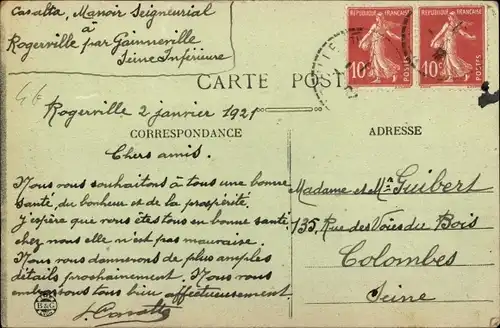 Casalta, Manoir Seigneurial
à
Rogerville par Gainneville
Seine Inférieure
CARTE POSTALE
Rogerville 2 janvier 1921
CORRESPONDANCE
Chers amis.
Nous vous souhaitons à tous une bonne
santé, du bonheur et de la prospérité.
J'espère que vous êtes tous en bonne santé
chez nous elle n'est pas mauvaise.
Nous vous donnerons de plus amples
détails prochainement. Nous vous
embrassons tous bien affectueusement.
S. Casalta
B&G
REPUBLIQUE FRANÇAISE
10c
POSTES
REPUBLIQUE FRANÇAISE
10c
POSTES
ADRESSE
Madame et Mr Guibert
135, Rue des Voies du Bois
Colombes
Seine